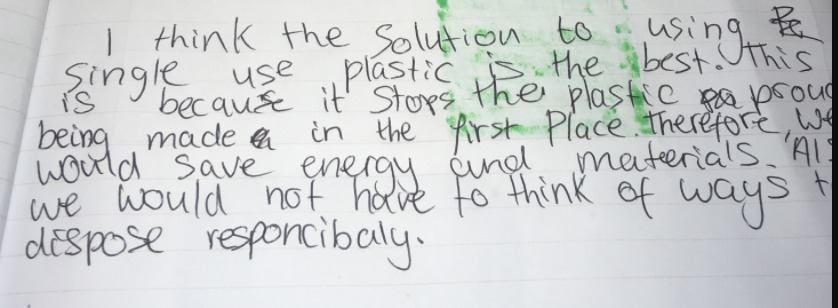 I think the Solution to using
Single use plastic is the best. This
is because it Stops the plastic
being made in the first Place. Therefore, we
would save energy and mateerials.
we would not have to think of ways
dispose responcibaly.